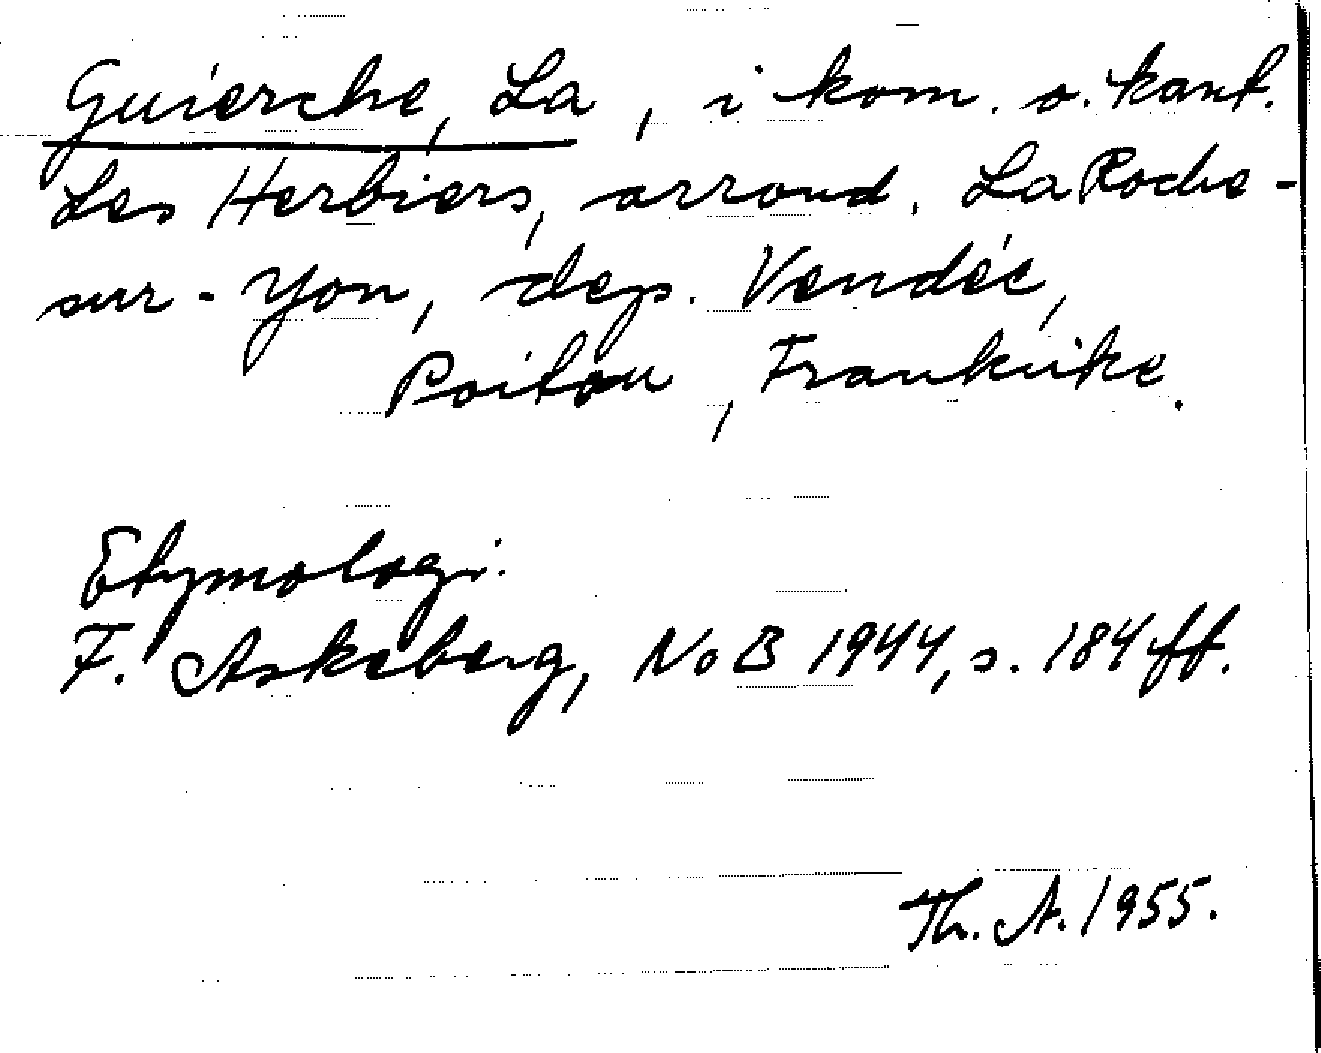 Guierche, La, i kom. o. kant.
Les Herbiers, arrond. La Roche-
sur-Yon, dep. Vendée,
Poitou, Frankrike.
Etymologi:
F. Askeberg, NoB 1944, s. 184 ff.
Th. A. 1955.